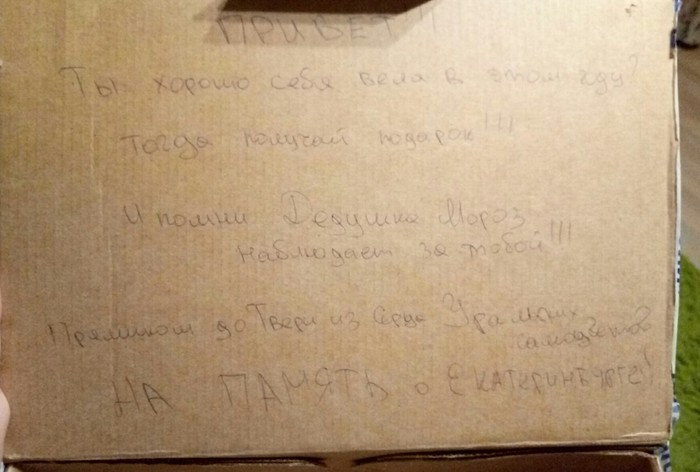 ПРИВЕТ!!
Ты хорошо себя вела в этом году?
Тогда получай подарок!!!
И помни Дедушка Мороз
наблюдает за тобой!!!
Прямиком до Твери из Сердца Уральских
самоцветов
НА ПАМЯТЬ о ЕКАТЕРИНБУРГЕ!!